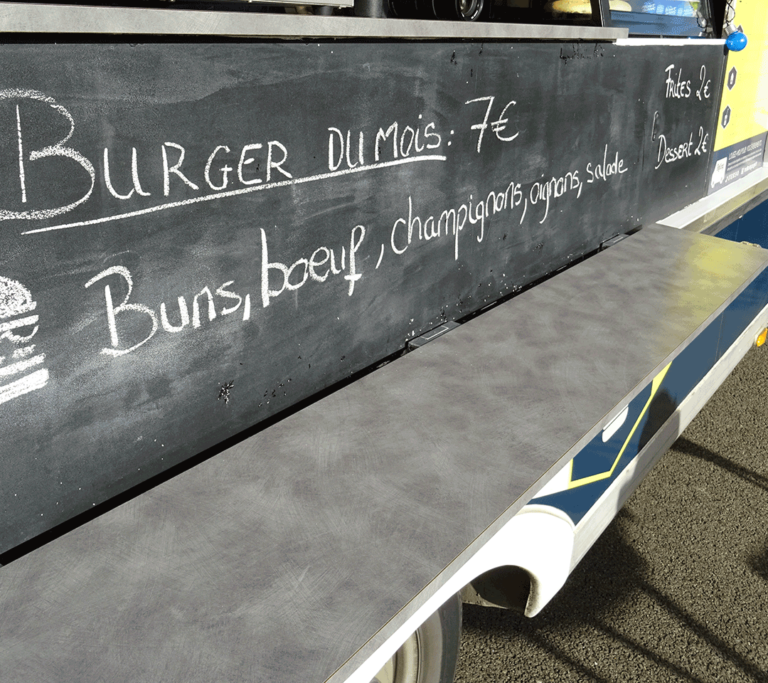 BURGER DU MOIS: 7€
Buns, boeuf, champignons, oignons, salade
Frites 2€
Dessert 2€